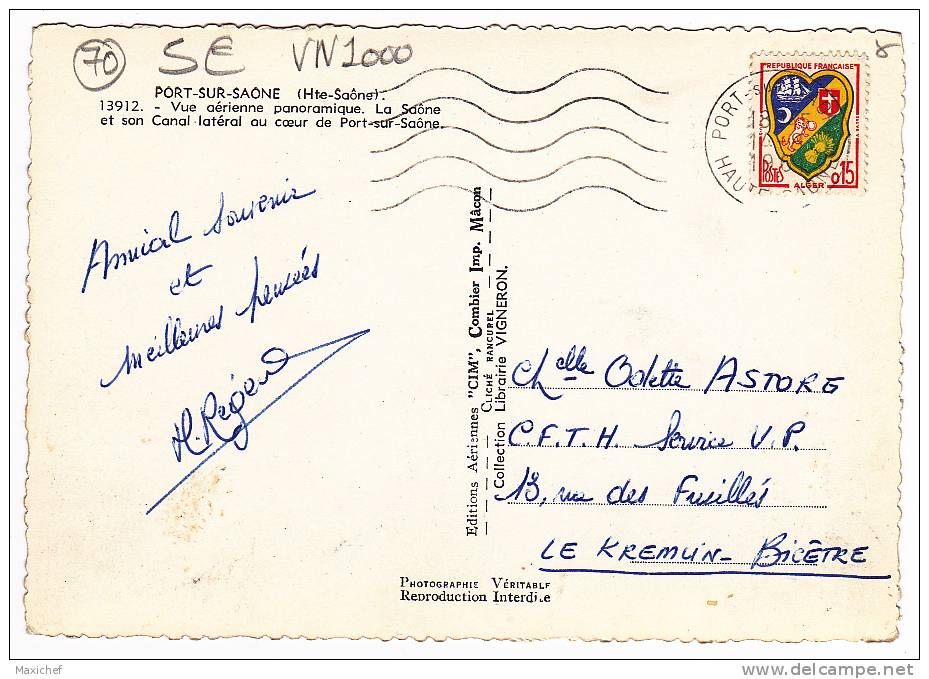 70 SE VN1000
PORT-SUR-SAÔNE (Hte-Saône).
13912. - Vue aérienne panoramique. La Saône
et son Canal latéral au cœur de Port-sur-Saône.
REPUBLIQUE FRANÇAISE
POSTES
0,15
ALGER
PORT-SUR
18
HAUTE SAONE
Amical Souvenir
et
meilleures pensées
Editions Aériennes "CIM", Combier Imp. Mâcon
CLICHÉ RANCUREL
Collection Librairie VIGNERON.
Odette ASTORE
C.F.T.H. Service V.P.
13, rue des Fusillés
LE KREMLIN-BICÊTRE
PHOTOGRAPHIE VÉRITABLE
Reproduction Interdite
Maxichef
www.delcampe.net